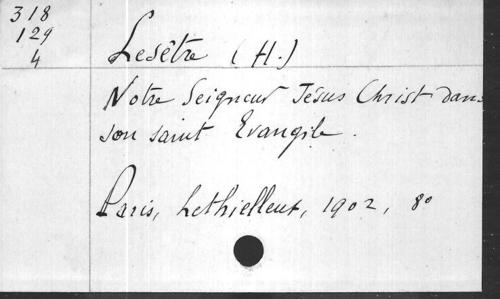 318
129
4
Lesêtre (H.)
Notre Seigneur Jésus Christ dans
son saint Evangile.
Paris, Lethielleux, 1902, 8º